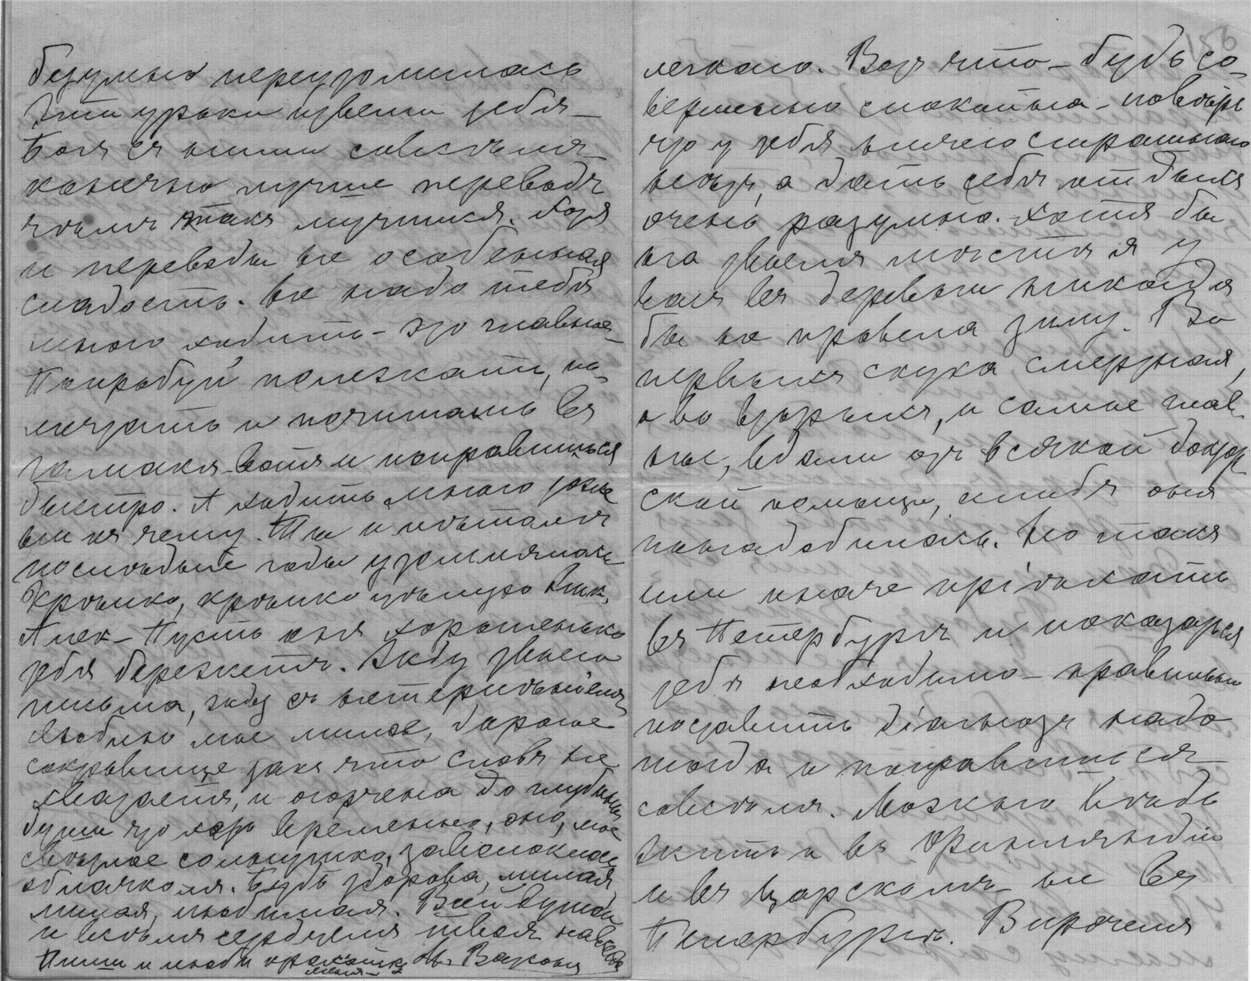 безумно переутомилась
Эти уроки извели тебя –
Богъ съ ними совсѣмъ –
конечно лучше переводъ
чѣмъ такъ мучиться. Хотя
и переводы не особенная
сладость. Не надо тебѣ
много ходить – это главное –
Попробуй полежать, по-
мечтать и почитать въ
гамакѣ – вотъ и поправишься
быстро. А ходить много тоже
ни къ чему. Ты и
послѣдніе годы утомлялась
Крѣпко, крѣпко цѣлую
Алек – Пусть она хорошенько
тебя бережетъ. Жду твоего
письма, жду съ нетерпѣніемъ
Люблю мое милое, дорогое
сокровище такъ что словъ не
хватаетъ, и огорчена до глубины
души что хоть временно, оно, мое
свѣтлое солнышко, заволокнось
облачкомъ. Будь здорова, милая,
милая, любимая. Всей душой
и всѣмъ сердцемъ твоя навѣкъ
Пиши и люби
меня –
легкаго. Вотъ что – будь со-
вершенно спокойна – повѣрь
что у тебя ничего страшнаго
нѣтъ, а дать себѣ отдыхъ
очень разумно. Хотя бы
на твоемъ мѣстѣ я у
васъ въ деревнѣ никогда
бы не провела зиму. 1) Во
первыхъ скука смертная,
а во вторыхъ, и самое глав-
ное, вдали отъ всякой доктор-
ской помощи, ежели бы она
понадобилась. Но такъ
или иначе пріѣхать
въ Петербургъ и показаться
тебѣ необходимо – правильно
поставить діагнозъ надо
тогда и поправишься
совсѣмъ. Можно вѣдь
жить и въ Финляндіи
и въ Царскомъ – не въ
Петербургѣ. Впрочемъ